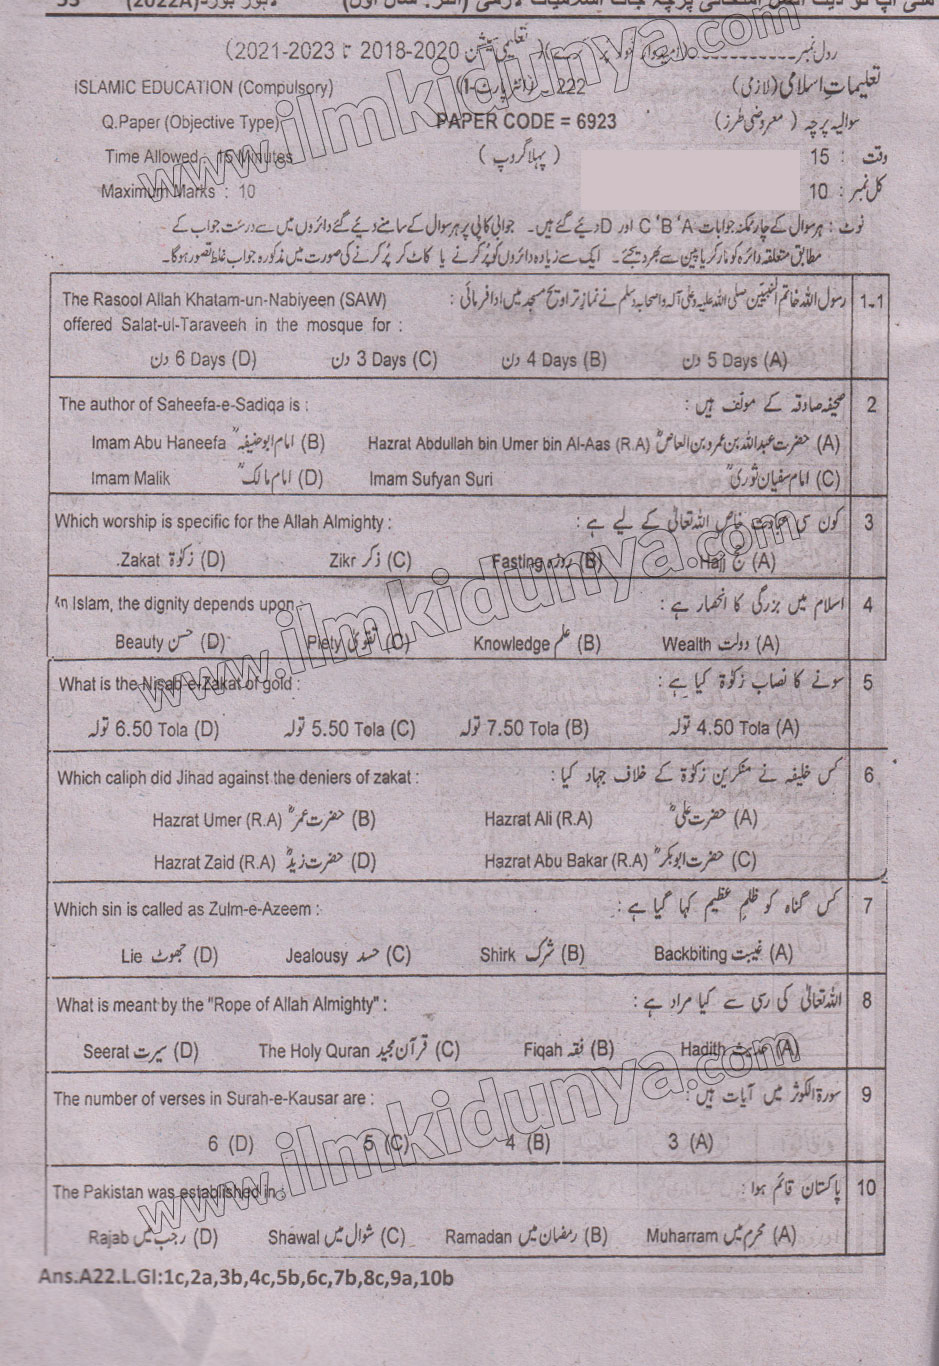 ردل نمبر (امیدوار خود پر کرے) (تعلیمی سیشن 2020-2018 تا 2023-2021)
تعلیمات اسلامی (لازمی) 222 ISLAMIC EDUCATION (Compulsory)
سوالیہ پرچہ (معروضی طرز) PAPER CODE = 6923 Q.Paper (Objective Type)
وقت : 15 (پہلا گروپ) Time Allowed : 15 Minutes
کل نمبر : 10 Maximum Marks : 10
نوٹ : ہر سوال کے چار ممکنہ جوابات A ، B ، C اور D دیئے گئے ہیں۔ جوابی کاپی پر ہر سوال کے سامنے دیئے گئے دائروں میں سے درست جواب کے
مطابق متعلقہ دائرہ کو مارکر یا پین سے بھر دیجئے۔ ایک سے زیادہ دائروں کو پُر کرنے یا کاٹ کر پُر کرنے کی صورت میں مذکورہ جواب غلط تصور ہوگا۔
1-1 رسول اللہ خاتم النبیین صلی اللہ علیہ وعلی آلہ واصحابہ وسلم نے نماز تراویح مسجد میں ادا فرمائی : The Rasool Allah Khatam-un-Nabiyeen (SAW)
offered Salat-ul-Taraveeh in the mosque for :
(A) 5 Days دن (B) 4 Days دن (C) 3 Days دن (D) 6 Days دن
2 صحیفہ صادقہ کے مولف ہیں : The author of Saheefa-e-Sadiqa is :
(A) حضرت عبداللہ بن عمرو بن العاص Hazrat Abdullah bin Umer bin Al-Aas (R.A) (B) امام ابو حنیفہ Imam Abu Haneefa
(C) امام سفیان ثوری Imam Sufyan Suri (D) امام مالک Imam Malik
3 کون سی عبادت خاص اللہ تعالیٰ کے لیے ہے : Which worship is specific for the Allah Almighty :
(A) حج Hajj (B) روزہ Fasting (C) ذکر Zikr (D) زکوٰۃ Zakat.
4 اسلام میں بزرگی کا انحصار ہے : In Islam, the dignity depends upon :
(A) دولت Wealth (B) علم Knowledge (C) تقویٰ Piety (D) حسن Beauty
5 سونے کا نصاب زکوٰۃ کیا ہے : What is the Nisab-e-Zakat of gold :
(A) 4.50 Tola تولہ (B) 7.50 Tola تولہ (C) 5.50 Tola تولہ (D) 6.50 Tola تولہ
6 کس خلیفہ نے منکرین زکوٰۃ کے خلاف جہاد کیا : Which caliph did Jihad against the deniers of zakat :
(A) حضرت علیؓ Hazrat Ali (R.A) (B) حضرت عمرؓ Hazrat Umer (R.A)
(C) حضرت ابوبکرؓ Hazrat Abu Bakar (R.A) (D) حضرت زیدؓ Hazrat Zaid (R.A)
7 کس گناہ کو ظلم عظیم کہا گیا ہے : Which sin is called as Zulm-e-Azeem :
(A) غیبت Backbiting (B) شرک Shirk (C) حسد Jealousy (D) جھوٹ Lie
8 اللہ تعالیٰ کی رسی سے کیا مراد ہے : What is meant by the "Rope of Allah Almighty" :
(A) حدیث Hadith (B) فقہ Fiqah (C) قرآن مجید The Holy Quran (D) سیرت Seerat
9 سورۃ الکوثر میں آیات ہیں : The number of verses in Surah-e-Kausar are :
(A) 3 (B) 4 (C) 5 (D) 6
10 پاکستان قائم ہوا : The Pakistan was established in :
(A) محرم میں Muharram (B) رمضان میں Ramadan (C) شوال میں Shawal (D) رجب میں Rajab
Ans.A22.L.GI:1c,2a,3b,4c,5b,6c,7b,8c,9a,10b
www.ilmkidunya.com
www.ilmkidunya.com
www.ilmkidunya.com